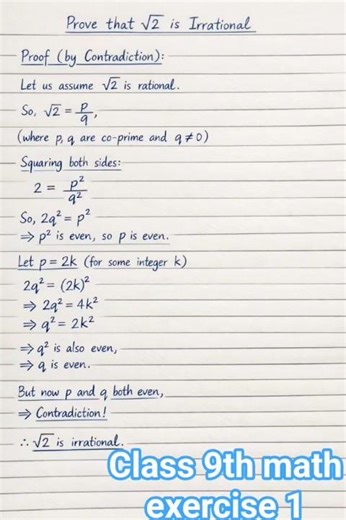 Prove that √2 is Irrational
Proof (by Contradiction):
Let us assume √2 is rational.
So, √2 = p/q,
(where p, q are co-prime and q ≠ 0)
Squaring both sides:-
2 = p²/q²
So, 2q² = p²
⇒ p² is even, so p is even.
Let p = 2k (for some integer k)
2q² = (2k)²
⇒ 2q² = 4k²
⇒ q² = 2k²
⇒ q² is also even,
⇒ q is even.
But now p and q both even,
⇒ Contradiction!
∴ √2 is irrational.
Class 9th math
exercise 1